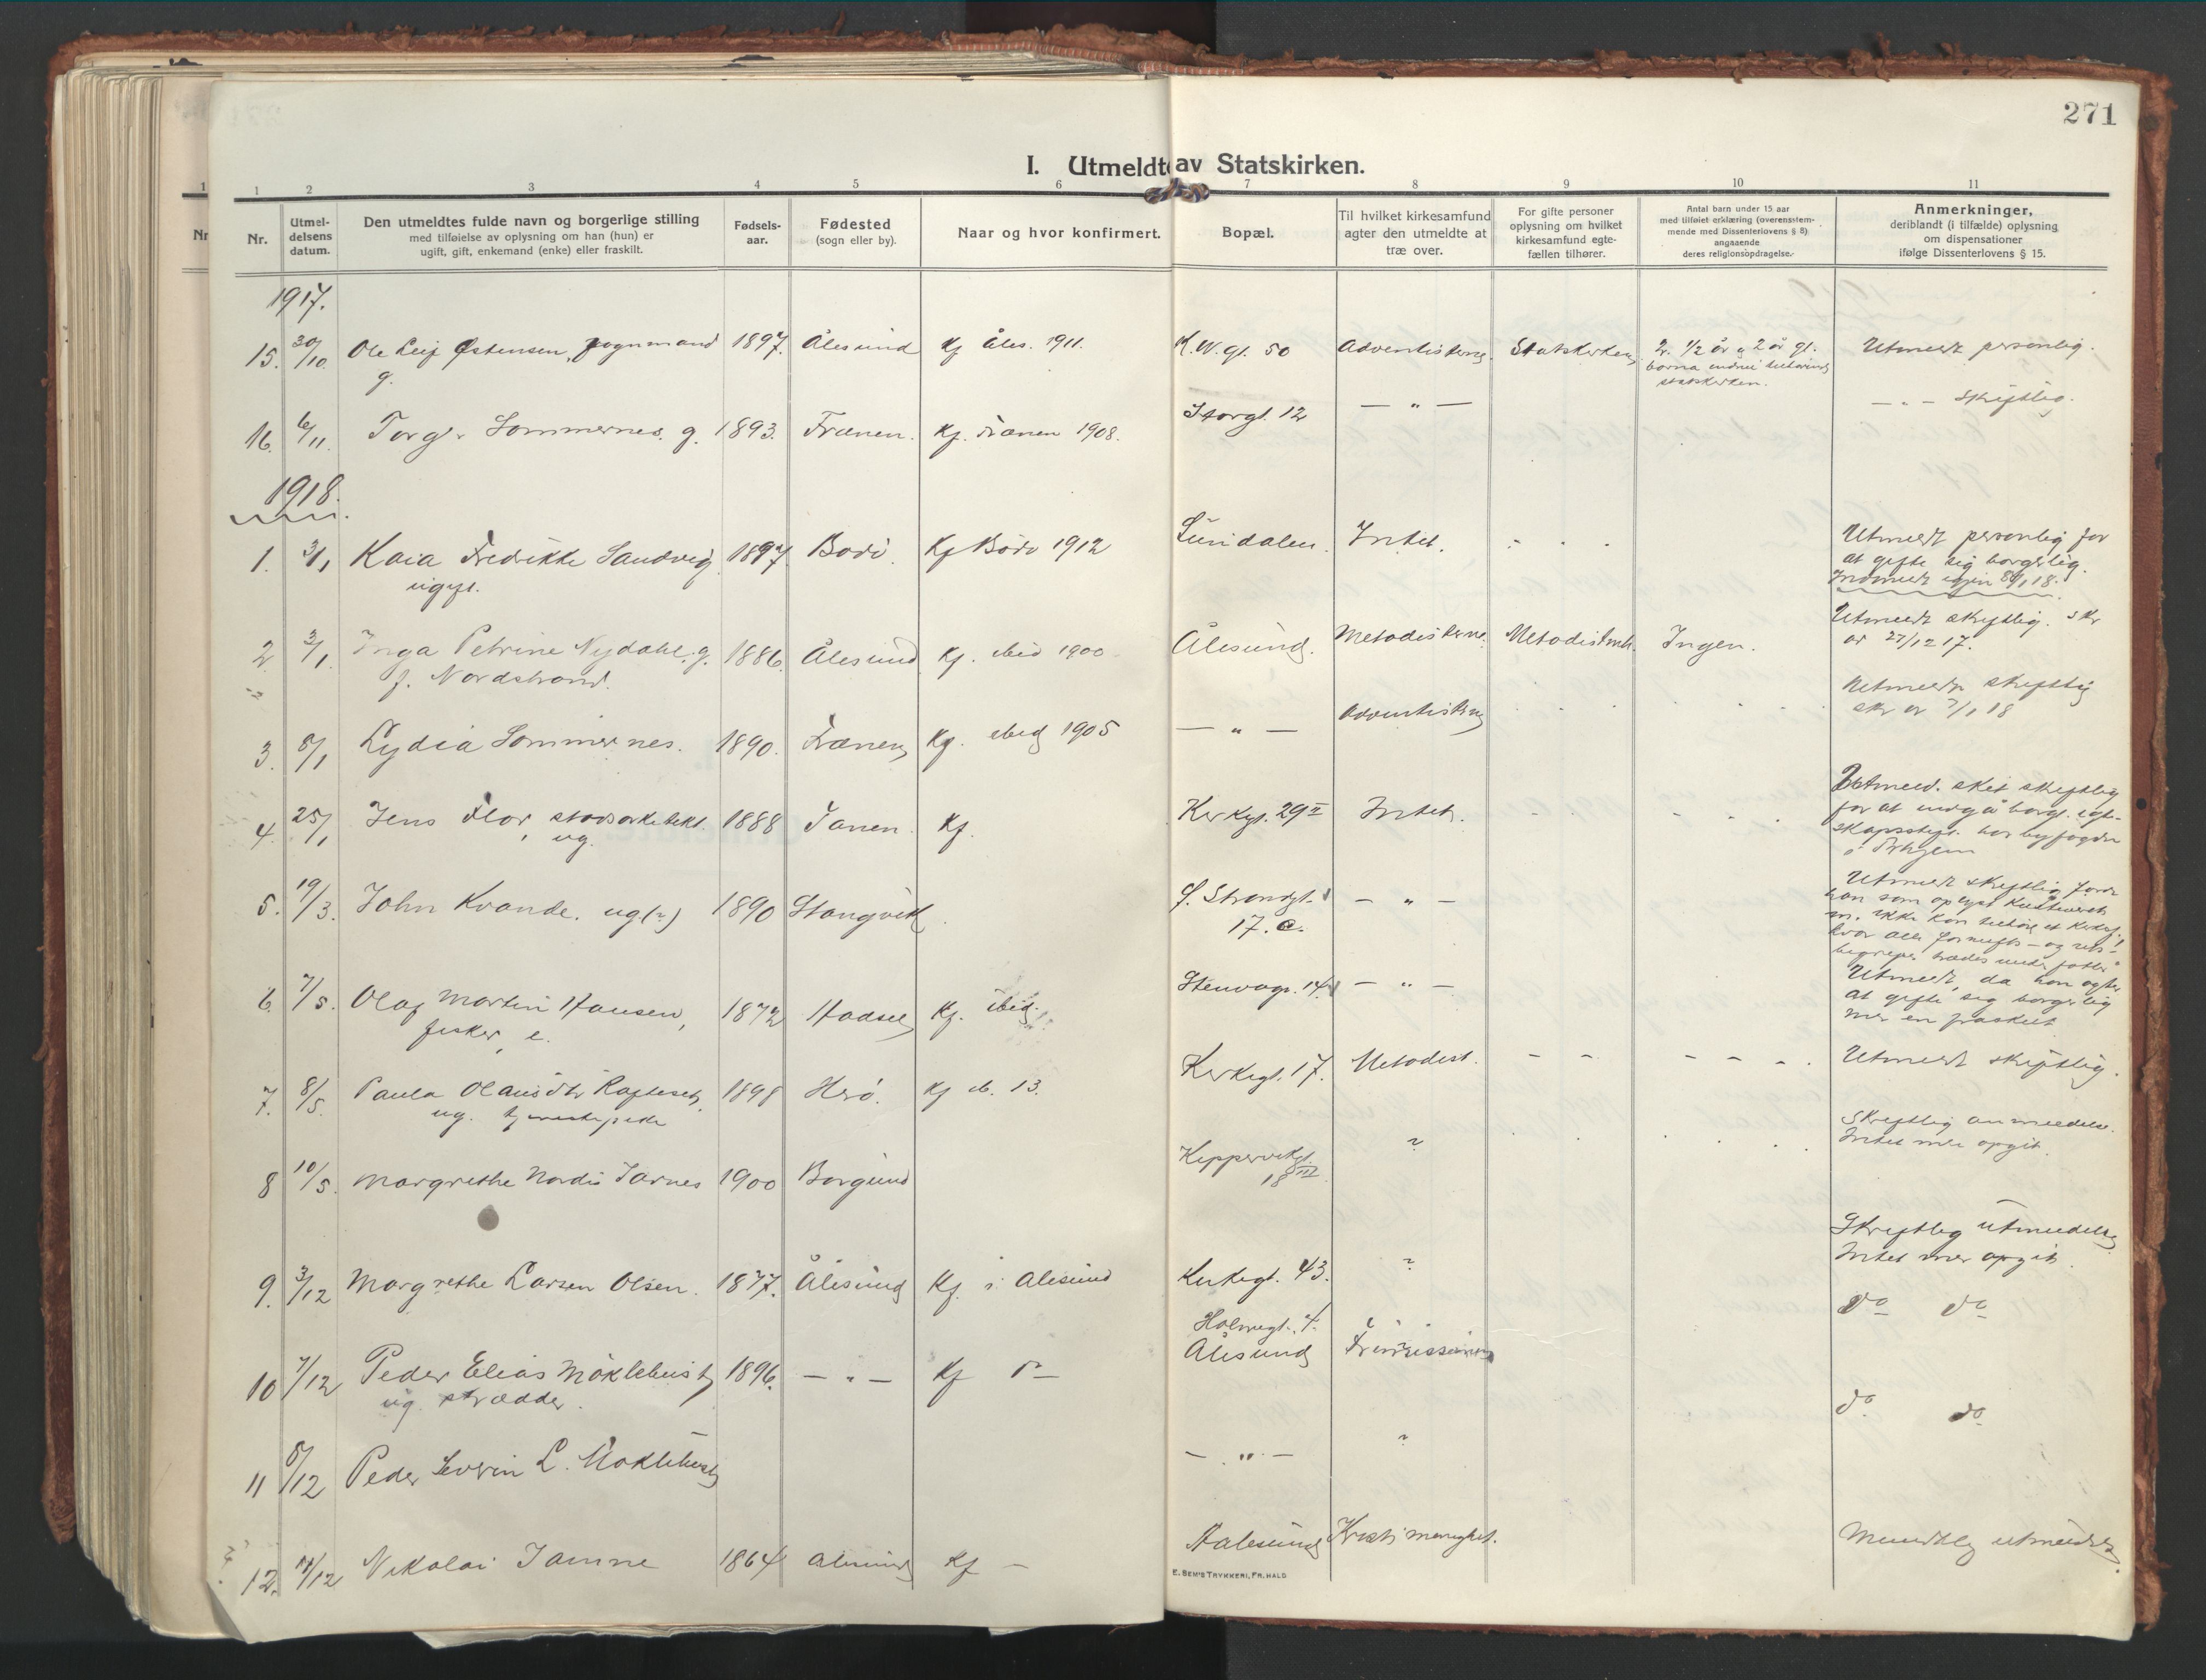 271
I. Utmeldte av Statskirken.
1 2 3 4 5 6 7 8 9 10 11
Nr.
Utmel-
delsens
datum.
Den utmeldtes fulde navn og borgerlige stilling
med tilføielse av oplysning om han (hun) er
ugift, gift, enkemand (enke) eller fraskilt.
Fødsels-
aar.
Fødested
(sogn eller by).
Naar og hvor konfirmert.
Bopæl.
Til hvilket kirkesamfund
agter den utmeldte at
træ over.
For gifte personer
oplysning om hvilket
kirkesamfund egte-
fællen tilhører.
Antal barn under 15 aar
med tilføiet erklæring (overensstem-
mende med Dissenterlovens § 8)
angaaende
deres religionsopdragelse.
Anmerkninger,
deriblandt (i tilfælde) oplysning
om dispensationer
ifølge Dissenterlovens § 15.
1917.
15. 30/10. Ole Leif Østensen, 1897. Ålesund Kf Åles. 1911. K.W.gt. 50 Adventisterne. Statskirken 2. 1/2 år og 2 år gl. Utmeldt personlig.
g. barna endnu i
statskirken.
16. 6/11. Torger Sommernes. g. 1893. Frænen. Kf. Frænen 1908. Storgt. 12 — " — — " — skriftlig.
1918.
1. 3/1 Kaia Fredrikke Sandvig 1897. Bodö. Kf Bodö 1912 Sundalen. Intet. - - - Utmeldt personlig for
ugift. at gifte sig borgerlig.
Indmeldt igjen 18.
2 3/1. Inga Petrine Nydahl. g. 1886. Ålesund Kf. ibid 1900 Ålesund. Metodisterne. Ingen. Utmeldt skriftlig. skr
f. Nordstrand. av 27/12 17.
3. 8/1 Lydia Sommernes. 1890. Frænen Kf. ibid 1905 — " — Adventisterne Utmeldt skriftlig
skr av 7/1 18
4. 25/1 Jens Flor, stadsarkitekt. 1888 Kf. Kirkegt. 29 II Intet. Utmeld. sket skriftlig
ug. for at indgå borgl. egte-
skapsstift. hos byfogden
i
5. 19/3. John Kvande. ug(?) 1890 Stangvik Ø. Strandgt. — " — Utmeldt skriftlig fordi
17. C. han som oplyst
m. ikke kan tilhöre et
hvor alle fornufts- og rets-
begreper trædes under
6. 7/5. Olaf Martin Hansen, 1872 Hadsel Kf. ibid. 14 — " — Utmeldt, da han agter
fisker, e. at gifte sig borgerlig
med en fraskilt
7. 8/5. Paula Olausdtr 1898 Herö. Kf ib. 13. Kirkegt. 17. Metodist. - - - - - Utmeldt skriftlig.
ug. tjenestepike
8 10/5. Margrethe Nordis 1900 Borgund Kippervikgt. ? Skriftlig anmeldelse.
18 III Intet mer opgit.
9. 3/12 Margrethe Larsen Olsen. 1877. Ålesund Kf. i Alesund Kirkegt. 43. ? Skriftlig utmeldelse
Intet mer opgit.
10 7/12 Peder Elias Möklebust 1896. — " — Kf d— Holmegt. 4. do do
ug. skrædder. Ålesund
11 8/12 Peder Severin L. Möklebust — " — ? do do
12. /12 Nikolai 1864 Alesund Kf — Aalesund Kristi menighet. Mundtlig utmeldelse.
E. SEM'S TRYKKERI, FR. HALD